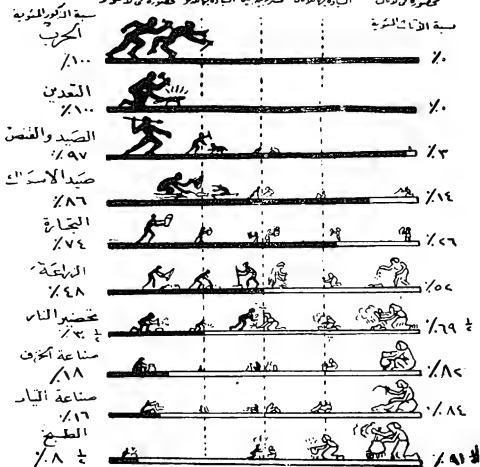 نسبة الذكور المئوية
نسبة الاناث المئوية
الحرب
٪١٠٠
٪٠
التعدين
٪١٠٠
٪٠
الصيد والقنص
٪٩٧
٪٣
صيد الاسماك
٪٨٦
٪١٤
التجارة
٪٧٤
٪٢٦
الزراعة
٪٤٨
٪٥٢
تحضير النار
٪٣٠ ½
٪٦٩ ½
صناعة الخزف
٪١٨
٪٨٢
صناعة
٪١٦
٪٨٤
الطبخ
٪٨ ½
٪٩١ ½